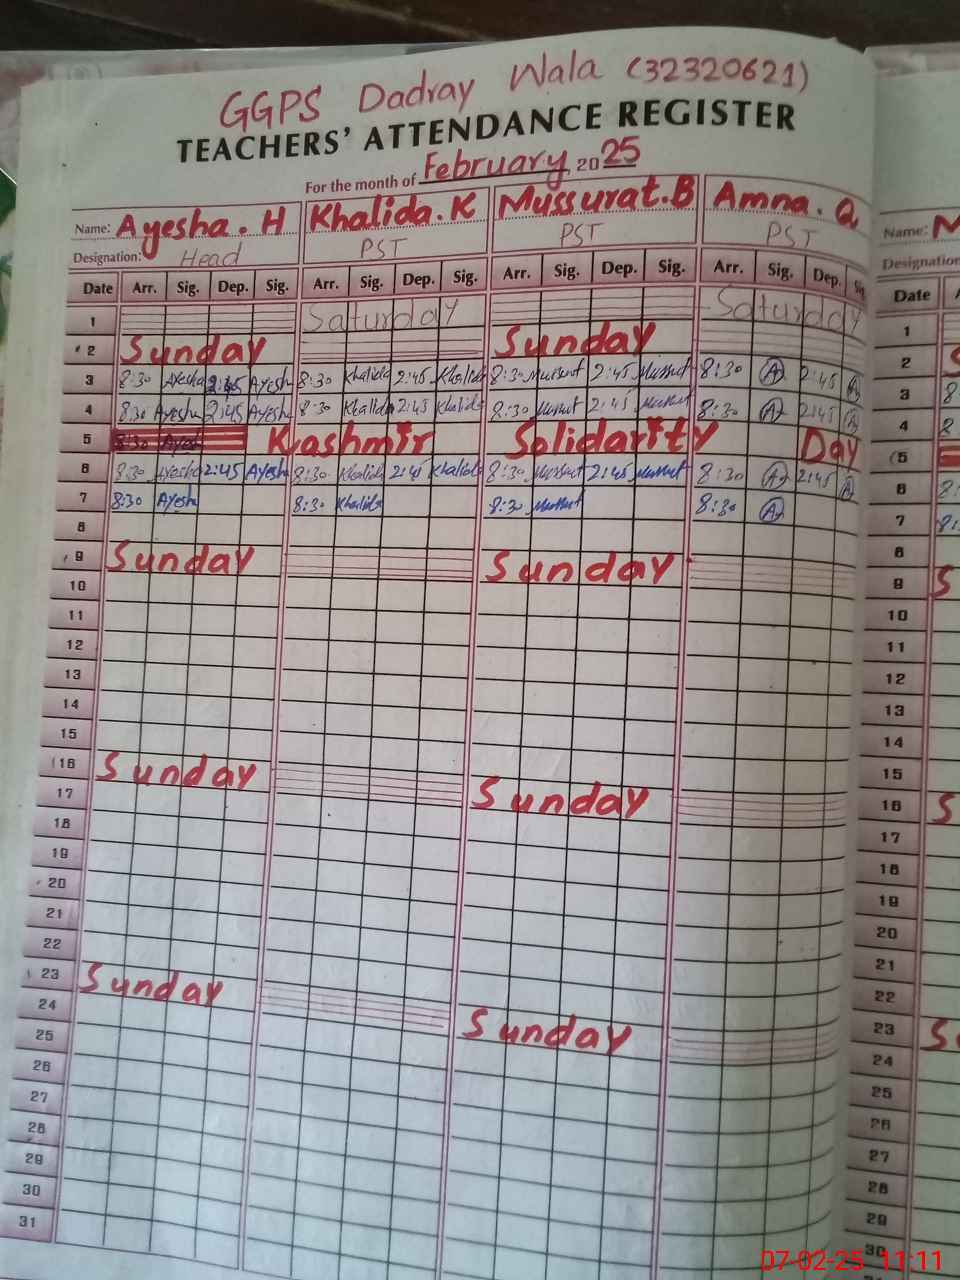 GGPS Dadray Wala (32320621)
TEACHERS' ATTENDANCE REGISTER
For the month of February 2025
Name: Ayesha. H Khalida. K Mussurat.B Amna. Q Name:
Designation: Head PST PST PST Designation
Date Arr. Sig. Dep. Sig. Arr. Sig. Dep. Sig. Arr. Sig. Dep. Sig. Arr. Sig. Dep. Date
1 Saturday Saturday 1
2 Sunday Sunday 2
3 8:30 Ayesha 2:45 Ayesha 8:30 Khalida 2:45 Khalida 8:30 Mussrut 2:45 Mussrut 8:30 A 2:45 A 3
4 8:30 Ayesha 2:45 Ayesha 8:30 Khalida 2:45 Khalida 8:30 Mussrut 2:45 Mussrut 8:30 A 2:45 4
5 8:30 Ayesh Kashmir Solidarity Day 5
6 8:30 Ayesha 2:45 Ayesha 8:30 Khalida 2:45 Khalida 8:30 Mussrut 2:45 Mussrut 8:30 A 2:45 A 6
7 8:30 Ayesh 8:30 Khalida 8:30 Mussrut 8:30 A 7
8 8
9 Sunday Sunday 9
10 10
11 11
12 12
13 13
14 14
15 15
16 Sunday Sunday 16
17 17
18 18
19 19
20 20
21 21
22 22
23 Sunday Sunday 23
24 24
25 25
26 26
27 27
28 28
29 29
30 30
31
07-02-25 11:11